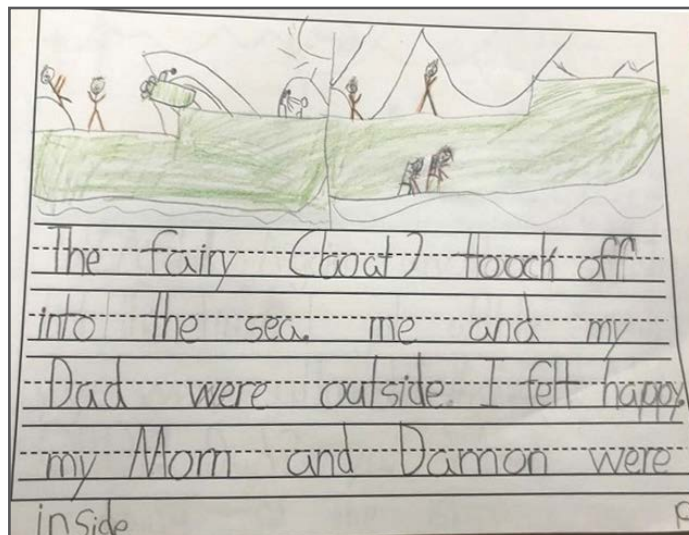 The fairy (boat) toock off
into the sea. me and my
Dad were outside. I felt happy.
my Mom and Damon were
inside